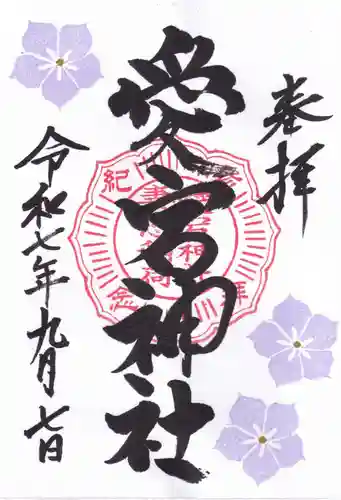 奉拝
愛宕神社
令和七年九月七日